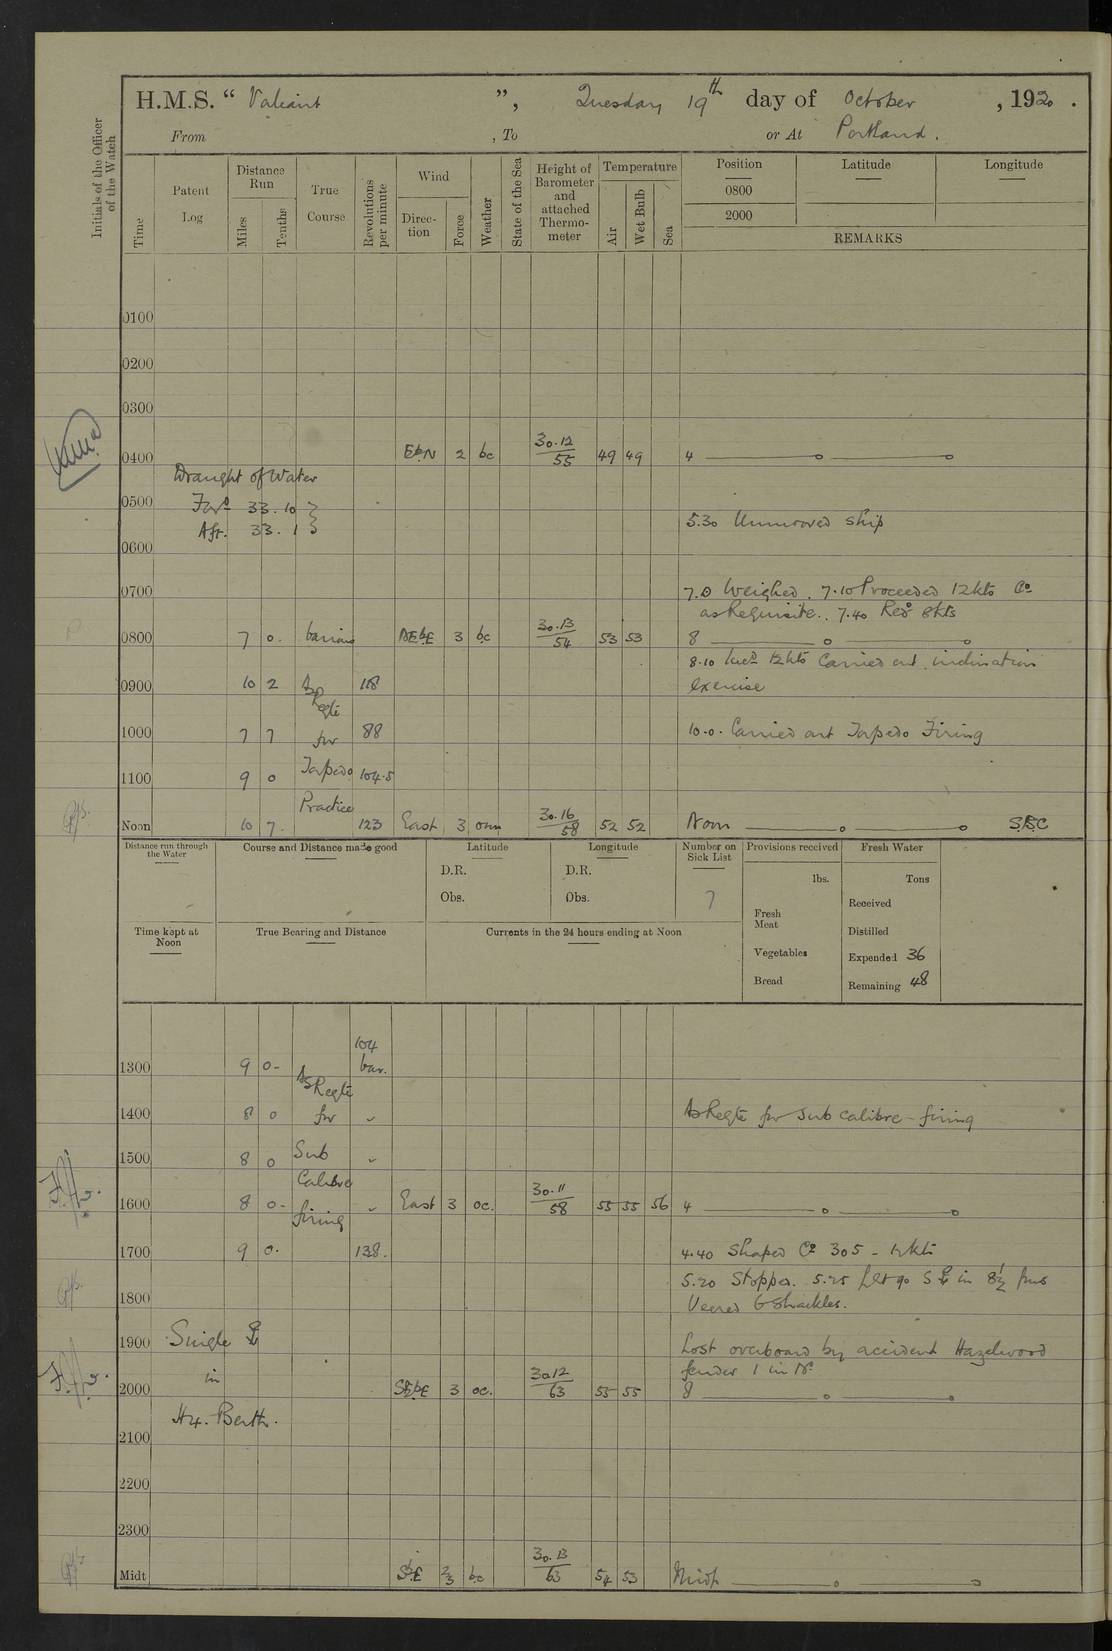 H.M.S. “ Valiant ”, Tuesday 19th day of October , 1920 .
From , To or At Portland.
Initials of the Officer of the Watch
Time
Patent Log
Distance Run
Miles
Tenths
True Course
Revolutions per minute
Wind
Direc- tion
Force
Weather
State of the Sea
Height of Barometer and attached Thermo- meter
Temperature
Air
Wet Bulb
Sea
Position
Latitude
Longitude
0800
2000
REMARKS
0100
0200
0300
0400 EbN 2 bc 30.12 55 49 49 4
Draught of Water
0500 Ford 33.10
Aft. 33.1
5.30 Unmoored ship
0600
0700 7.0 Weighed. 7.10 Proceeded 12kts Co
as Requisite. 7.40 Red 8kts
0800 7 0. various NEbE 3 bc 30.13 54 53 53 8
8.10 Incd 12kts Carried out inclination
0900 10 2 As 118 exercise
Reqte
1000 7 7 for 88 10.0. Carried out Torpedo Firing
1100 9 0 Torpedo 104.5
Practice
Noon 10 7. 123 East 3 om 30.16 58 52 52 Noon SBC
Distance run through the Water
Course and Distance made good
Latitude
D.R.
Obs.
Longitude
D.R.
Obs.
Number on Sick List
7
Provisions received
lbs.
Fresh Meat
Vegetables
Bread
Fresh Water
Tons
Received
Distilled
Expended 36
Remaining 48
Time kept at Noon
True Bearing and Distance
Currents in the 24 hours ending at Noon
104
1300 9 0 - var.
As Reqte
1400 8 0 for " As Reqte for Sub calibre firing
1500 8 0 Sub "
Calibre
1600 8 0 - firing " East 3 oc. 30.11 58 55 55 56 4
1700 9 0. 138. 4.40 Shaped Co 305 - 12kts
5.20 Stopped. 5.25 Let go S in 8½ fms
1800 Veered 6 Shackles.
1900 Single
Lost overboard by accident Hazelwood
in fender 1 in No
2000 SEbE 3 oc. 30.12 63 55 55 8
H4. Berth.
2100
2200
2300
Midt SbE 2/3 bc 30.13 63 54 53 Midt